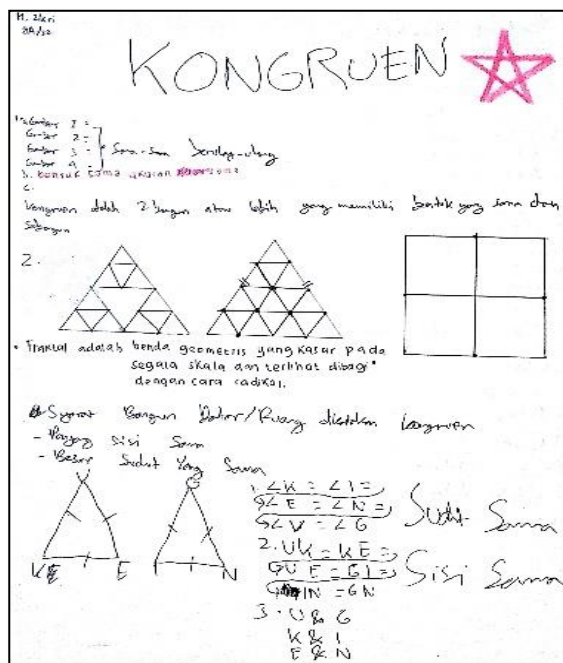 8A/22
KONGRUEN
Gambar 1 =
Gambar 2 =
Gambar 3 =
Gambar 4 =
Sama-sama berulang-ulang
b. bentuk sama ukuran
c.
Kongruen adalah 2 bangun atau lebih yang memiliki bentuk yang sama dan
sebangun
2.
• Fraktal adalah benda geometris yang kasar pada
segala skala dan terlihat dibagi"
dengan cara radikal.
Syarat Bangun Datar/Ruang dikatakan kongruen
- Panjang Sisi Sama
- Besar Sudut Yang Sama
V G
K E I N
1. ∠K = ∠I
∠E = ∠N
∠V = ∠G
Sudut Sama
2. VK = KE
VE = GI
IN = GN
Sisi Sama
3. V & G
K & I
E & N